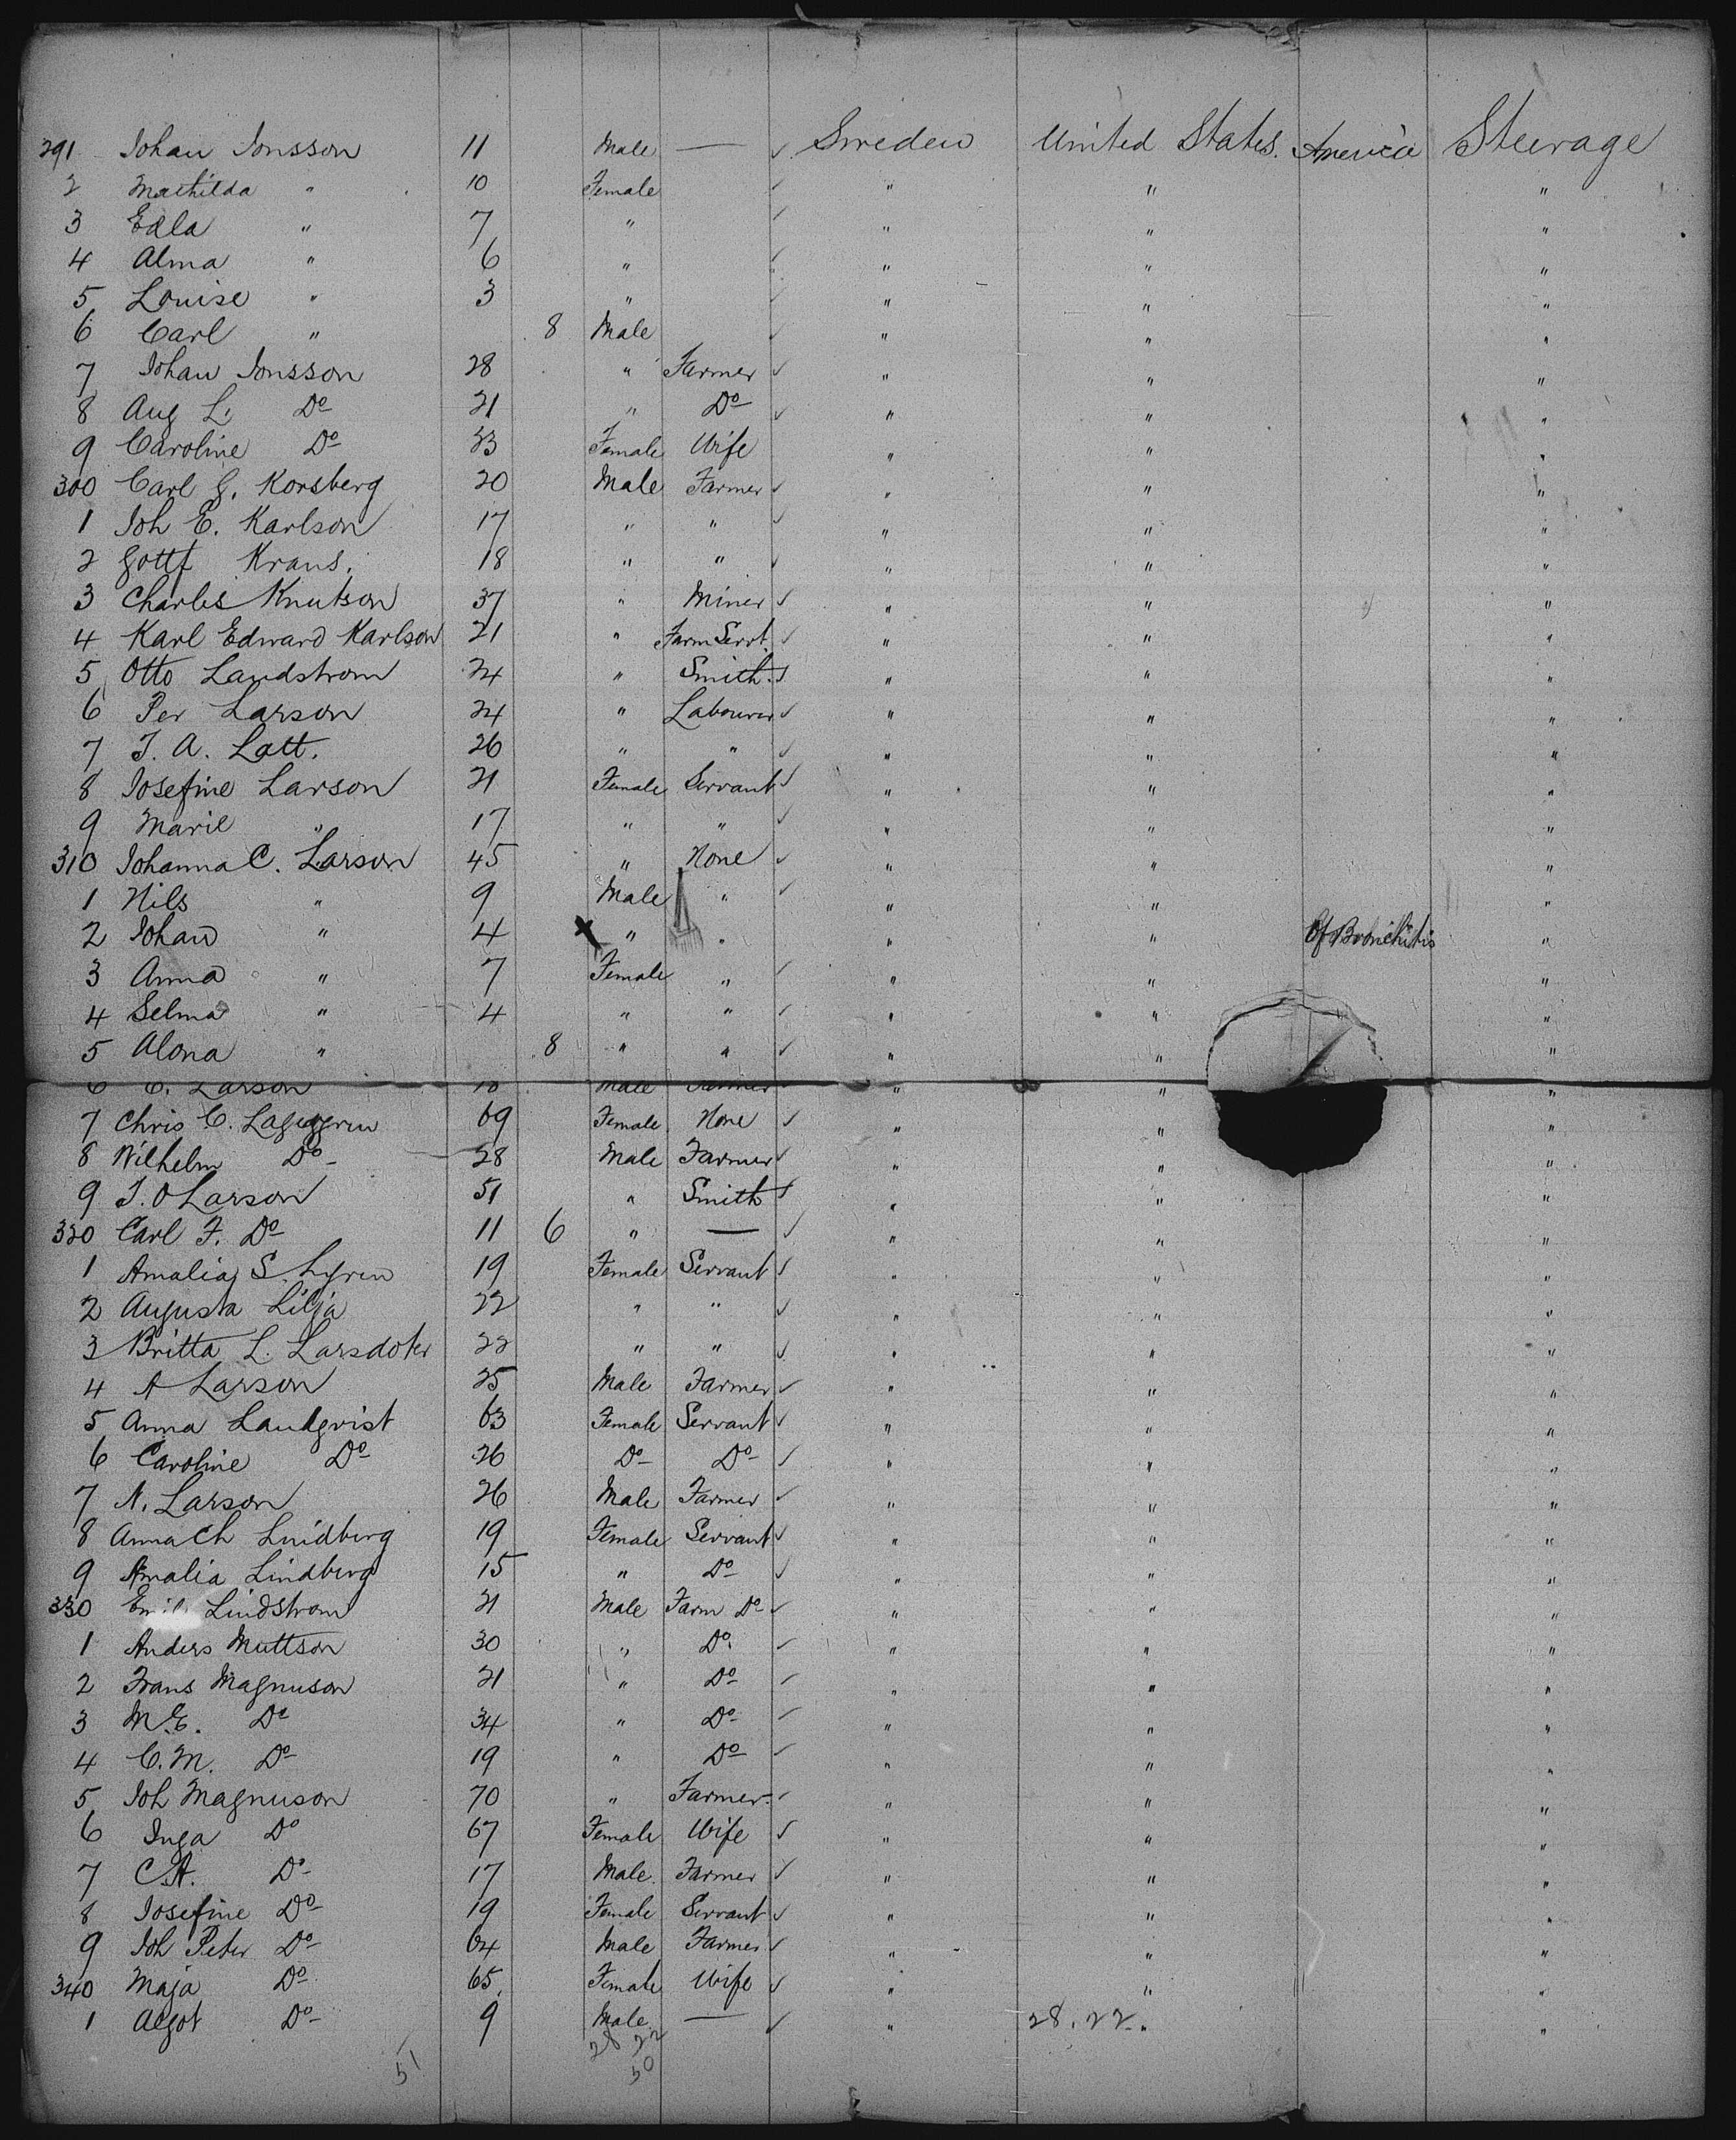 291 Johan Jonsson 11 Male — ✓ Sweden United States. America Steerage
2 Mathilda " 10 Female ✓ " " "
3 Edla " 7 " ✓ " " "
4 Alma " 6 " ✓ " " "
5 Louise " 3 " ✓ " " "
6 Carl " 8 Male ✓ " " "
7 Johan Jonsson 28 " Farmer ✓ " " "
8 Aug L. Do 21 " Do ✓ " " "
9 Caroline Do 23 Female Wife " " "
300 Carl G. Korsberg 20 Male Farmer ✓ " " "
1 Joh E. Karlson 17 " " ✓ " " "
2 Gottf Kraus. 18 " " ✓ " " "
3 Charles Knutson 37 " Miner ✓ " " "
4 Karl Edward Karlson 21 " Farm Servt. ✓ " " "
5 Otto Landstrom 24 " Smith. ✓ " " "
6 Per Larson 24 " Labourer ✓ " " "
7 J. A. Latt. 26 " " ✓ " " "
8 Josefine Larson 21 Female Servant ✓ " " "
9 Marie " 17 " " ✓ " " "
310 Johanna C. Larson 45 " None ✓ " " "
1 Nils " 9 Male " ✓ " " "
2 Johan " 4 " " " " Of Bronchitis "
3 Anna " 7 Female " ✓ " " "
4 Selma " 4 " " ✓ " " "
5 Alona " 8 " " ✓ " " "
6 C. Larson 18 Male Farmer ✓ " " "
7 Chris C. 69 Female None ✓ " " "
8 Wilhelm Do 28 Male Farmer ✓ " " "
9 J. O Larson 51 " Smith ✓ " " "
320 Carl F. Do 11 6 " — ✓ " " "
1 Amalia S. Lyren 19 Female Servant ✓ " " "
2 Augusta Lilja 22 " " ✓ " " "
3 Britta L. Larsdoter 22 " " ✓ " " "
4 A Larson 25 Male Farmer ✓ " " "
5 Anna Landqvist 63 Female Servant ✓ " " "
6 Caroline Do 26 Do Do ✓ " " "
7 N. Larson 26 Male Farmer ✓ " " "
8 Anna Ch Lindberg 19 Female Servant ✓ " " "
9 Amalia Lindberg 15 " Do ✓ " " "
330 Lindstrom 21 Male Farm Do ✓ " " "
1 Anders Muttson 30 " Do. ✓ " " "
2 Frans Magnuson 21 " Do ✓ " " "
3 M.E. Do 34 " Do ✓ " " "
4 C.M. Do 19 " Do ✓ " " "
5 Joh Magnuson 70 " Farmer ✓ " " "
6 Inga Do 67 Female Wife ✓ " " "
7 C.A. Do 17 Male Farmer ✓ " " "
8 Josefine Do 19 Female Servant ✓ " " "
9 Joh Peter Do 64 Male Farmer ✓ " " "
340 Maja Do 65 Female Wife ✓ " " "
1 Algot Do 9 Male — ✓ " 28. 22. " "
28 22
51 50